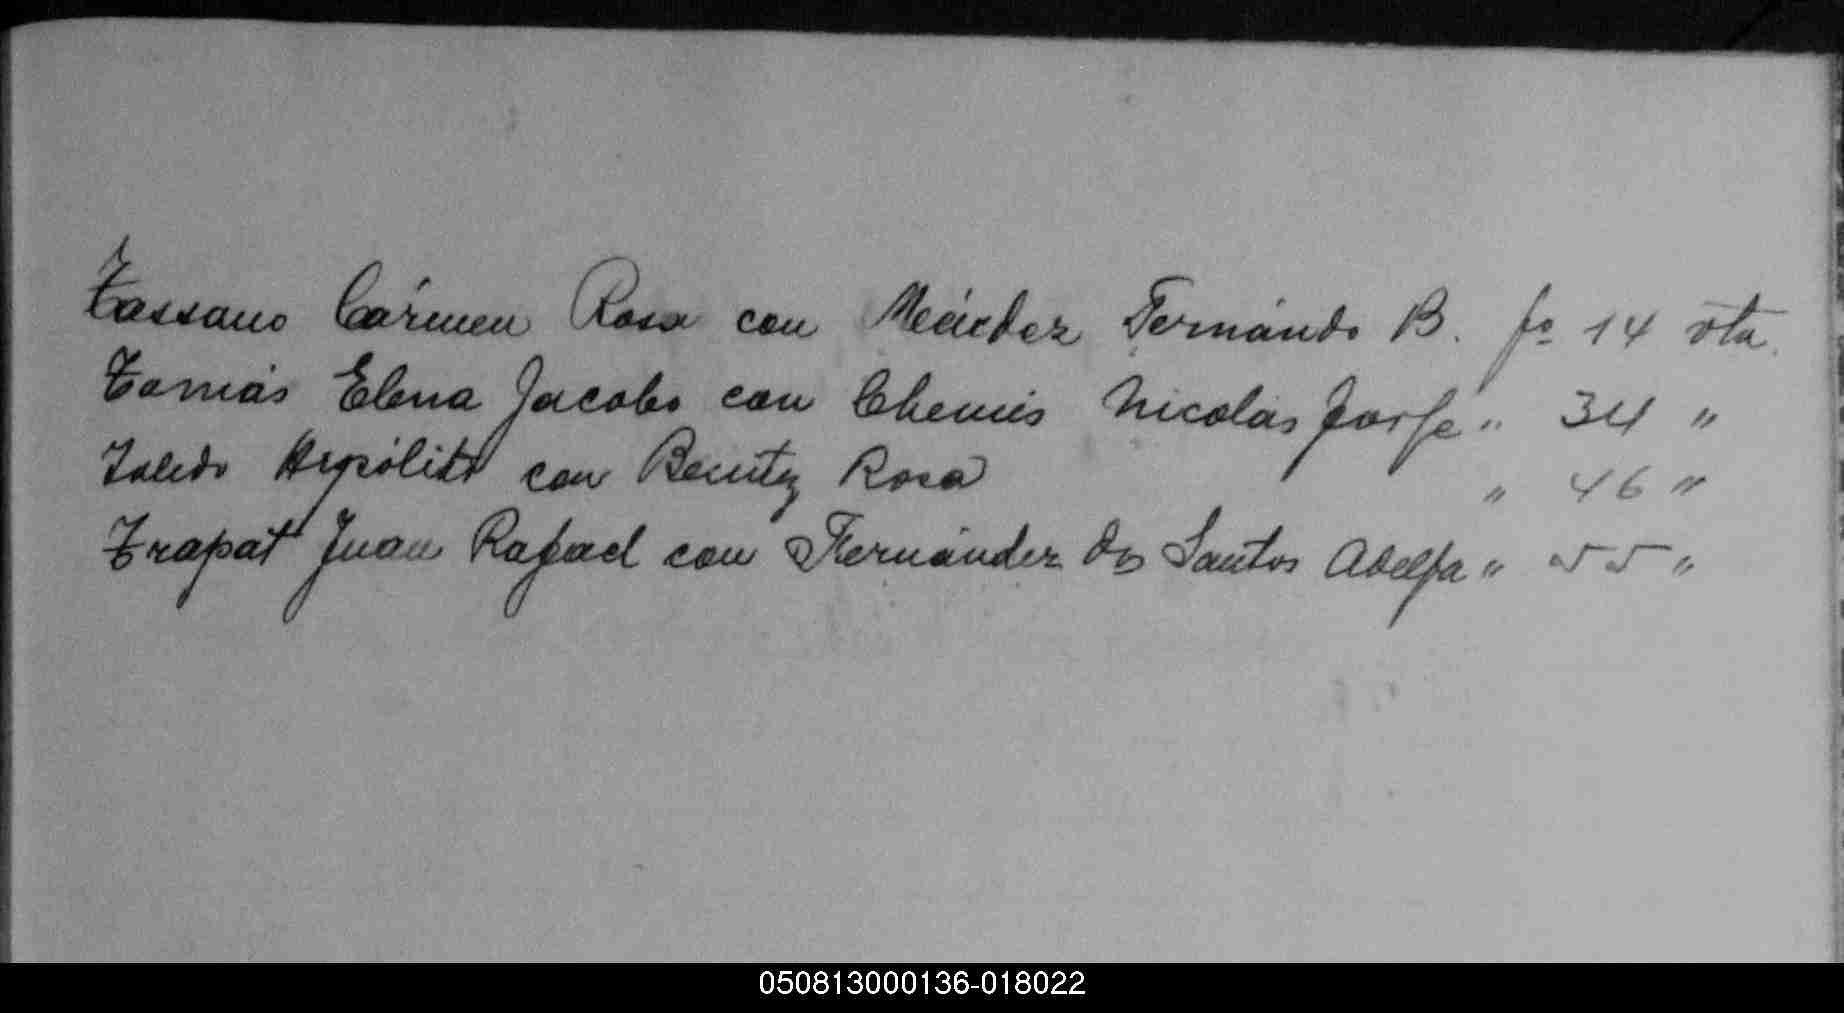 Tassano Cármen Rosa con Méndez Fernándo B. fo 14 vta.
Tomás Elena Jacobo con Chemes Nicolás Jorge " 34 "
Toledo Hypólito con Benitez Rosa " 46 "
Trapat Juan Rafael con Fernández dos Santos Adelfa " 55 "
050813000136-018022